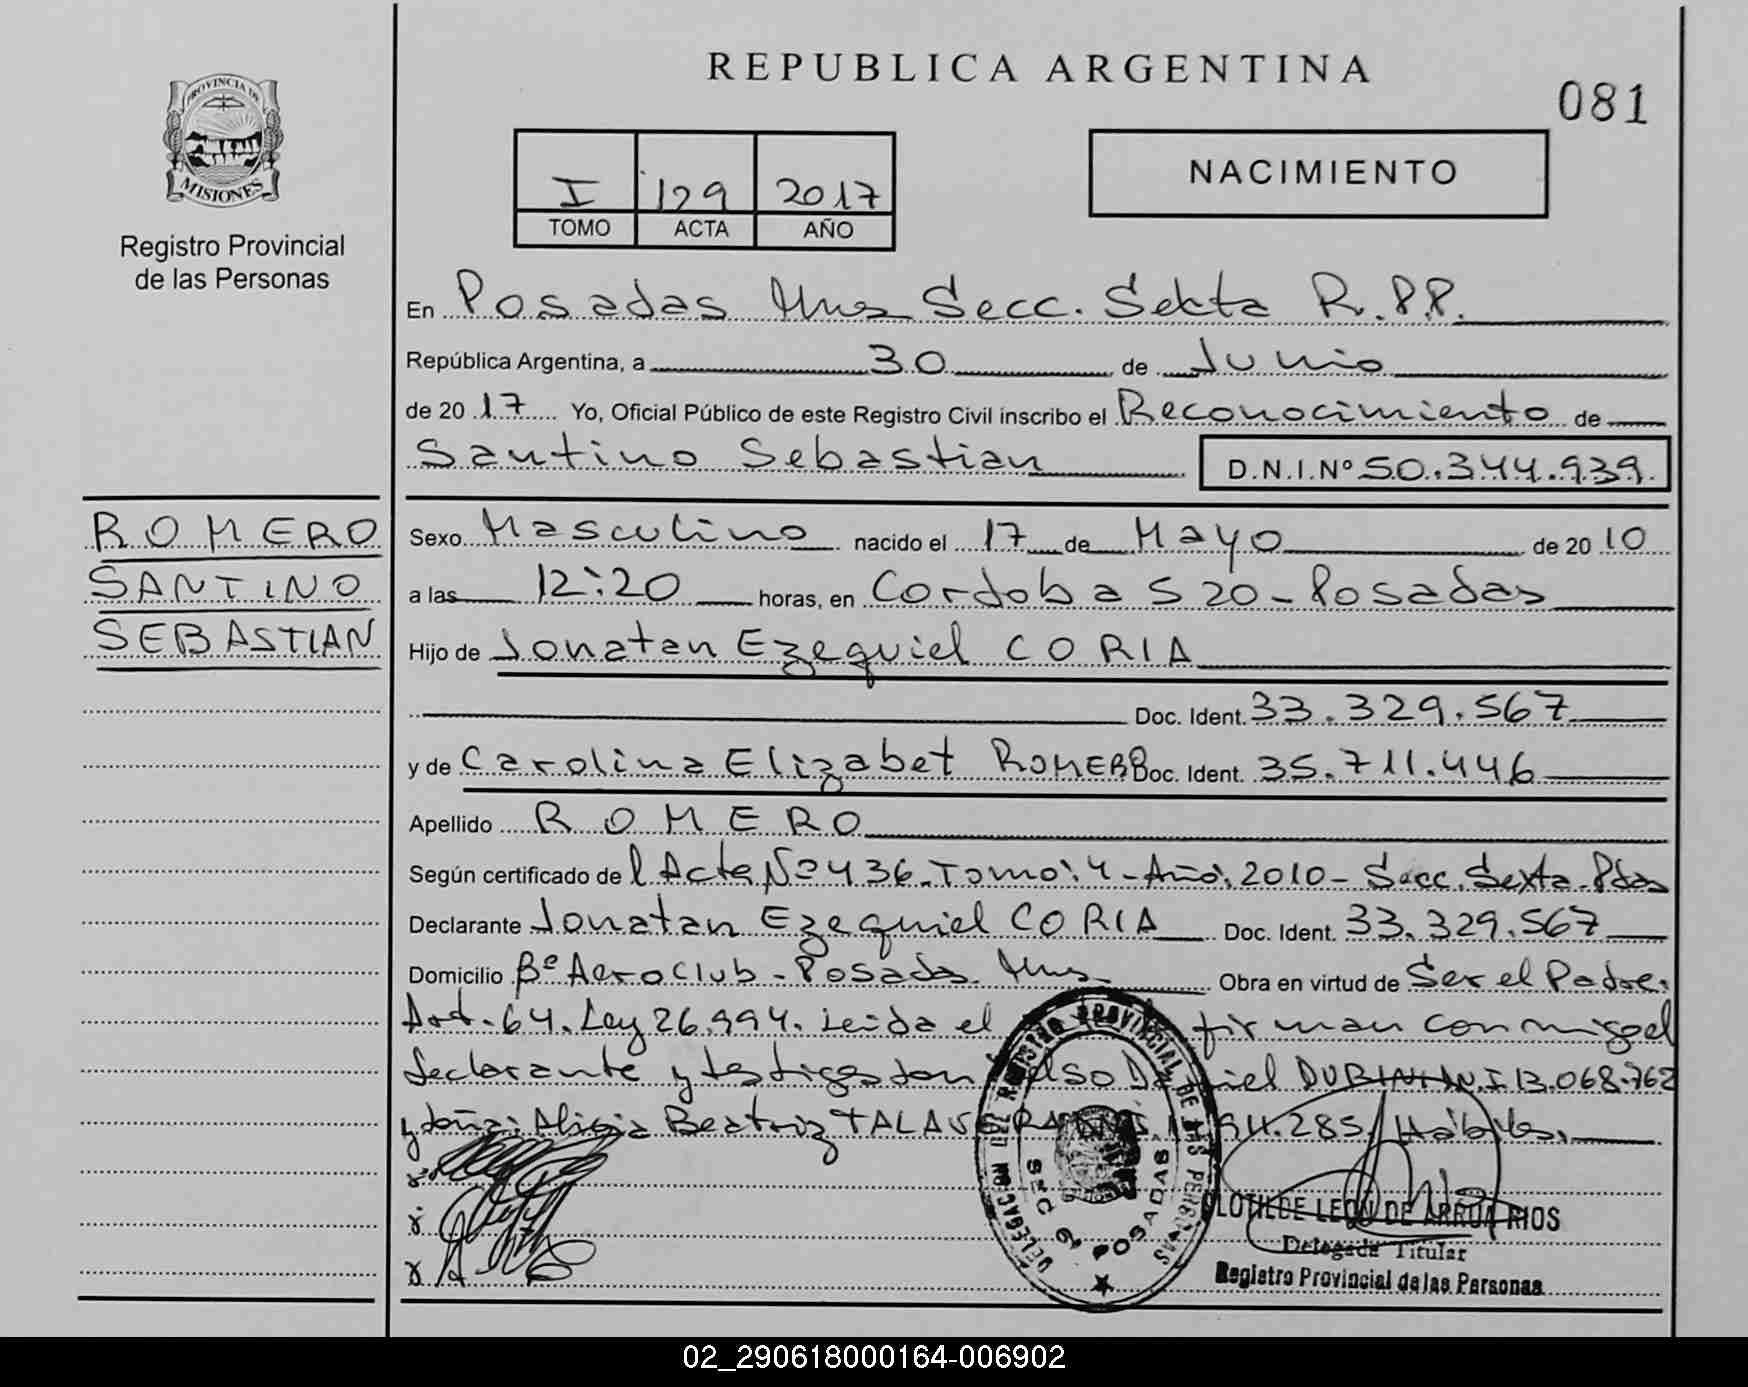 REPUBLICA ARGENTINA
081
PROVINCIA DE
MISIONES
Registro Provincial
de las Personas
NACIMIENTO
I 129 2017
TOMO ACTA AÑO
En Posadas Mnes Secc. Sexta R.PP.
República Argentina, a 30 de Junio
de 2017 Yo, Oficial Público de este Registro Civil inscribo el Reconocimiento de
Santino Sebastian D.N.I.Nº 50.344.939.
ROMERO
SANTINO
SEBASTIAN
Sexo Masculino nacido el 17 de Mayo de 2010
a las 12:20 horas, en Cordoba 520 - Posadas
Hijo de Jonatan Ezequiel CORIA
Doc. Ident. 33.329.567
y de Carolina Elizabet ROMERO Doc. Ident. 35.711.446
Apellido ROMERO
Según certificado de l Acta Nº 436. Tomo: 4 - Año: 2010 - Secc. Sexta. Pdas
Declarante Jonatan Ezequiel CORIA Doc. Ident. 33.329.567
Domicilio Bº Aero Club - Posadas. Mnes Obra en virtud de Ser el Padre.
Art. 64. Ley 26.994. Leida el firman conmigo el
declarante y testigos Don Daniel I 13.068.762
y doña: Alicia Beatriz TALAVERA 285. Hábiles.
DELEGACION DEL REGISTRO PROVINCIAL DE LAS PERSONAS
SEC 6ª POSADAS
CLOTILDE LEON DE ARRUA RIOS
Delegada Titular
Registro Provincial de las Personas
02_290618000164-006902